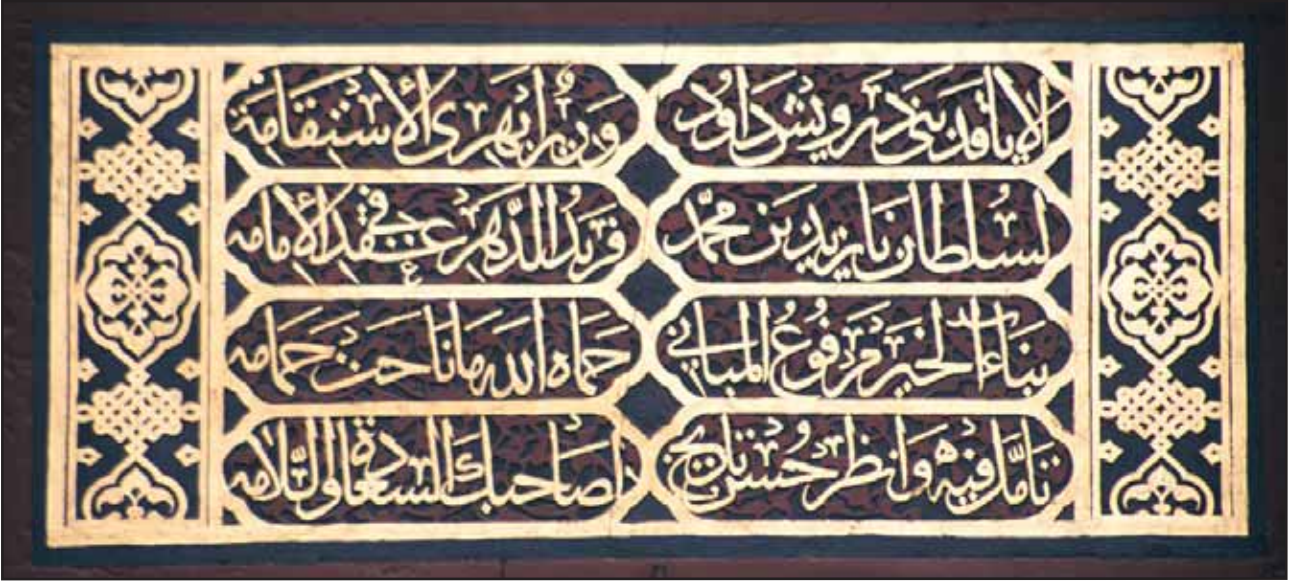 ألا يا قد بنى درويش داود وزير ابهرى الأستقامة
لسلطان بايزيد بن محمد فريد الدهر في عقد الإمامه
بناء الخير مرفوع المباني حماه الله ما ناحت حمامه
تامل فيه وانظر حسن تاريخ لصاحبك السعادة والسلامه